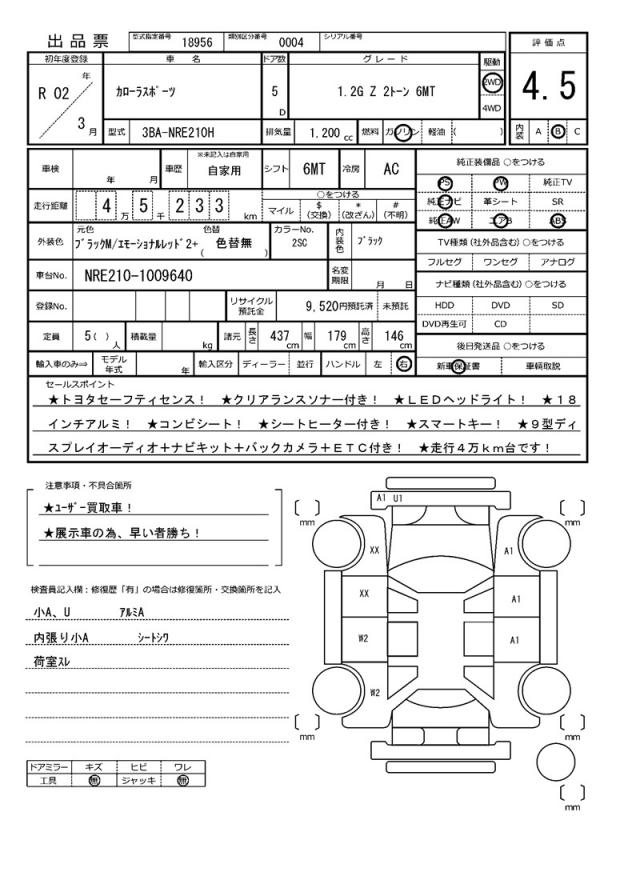 出品票 型式指定番号 18956 類別区分番号 0004 シリアル番号
評価点
初年度登録 車名 ドア数 グレード 駆動
R 02 年 3 月
カローラスポーツ 5 D 1.2G Z 2トーン 6MT 2WD 4WD
4.5
型式 3BA-NRE210H 排気量 1.200 cc 燃料 ガソリン 軽油 ( )
内装 A B C
車検 年 月 車歴 ※未記入は自家用 自家用 シフト 6MT 冷房 AC
純正装備品 ○をつける
PS PW 純正TV
純正ナビ 革シート SR
純正AW エアB ABS
走行距離 4 万 5 千 2 3 3 km
○をつける
マイル $ (交換) * (改ざん) # (不明)
外装色 元色 ブラックM/エモーショナルレッド2+ 色替 ( 色替無 ) カラーNo. 2SC 内装色 ブラック
TV種類 (社外品含む) ○をつける
フルセグ ワンセグ アナログ
車台No. NRE210-1009640 名変期限 月 日
ナビ種類 (社外品含む) ○をつける
HDD DVD SD
DVD再生可 CD
登録No. リサイクル預託金 9,520円預託済 未預託
定員 5( ) 人 積載量 kg 諸元 長さ 437 cm 幅 179 cm 高さ 146 cm
後日発送品 ○をつける
新車保証書 車輌取説
輸入車のみ⇒ モデル年式 年 輸入区分 ディーラー 並行 ハンドル 左 右
セールスポイント
★トヨタセーフティセンス! ★クリアランスソナー付き! ★LEDヘッドライト! ★18
インチアルミ! ★コンビシート! ★シートヒーター付き! ★スマートキー! ★9型ディ
スプレイオーディオ+ナビキット+バックカメラ+ETC付き! ★走行4万km台です!
注意事項・不具合箇所
★ユーザー買取車!
★展示車の為、早い者勝ち!
検査員記入欄:修復歴「有」の場合は修復箇所・交換箇所を記入
小A、U アルミA
内張り小A シートシワ
荷室スレ
ドアミラー キズ ヒビ ワレ
工具 無 ジャッキ 無
A1 U1
mm mm
XX A1
XX A1
W2 A1
W2
mm mm
mm